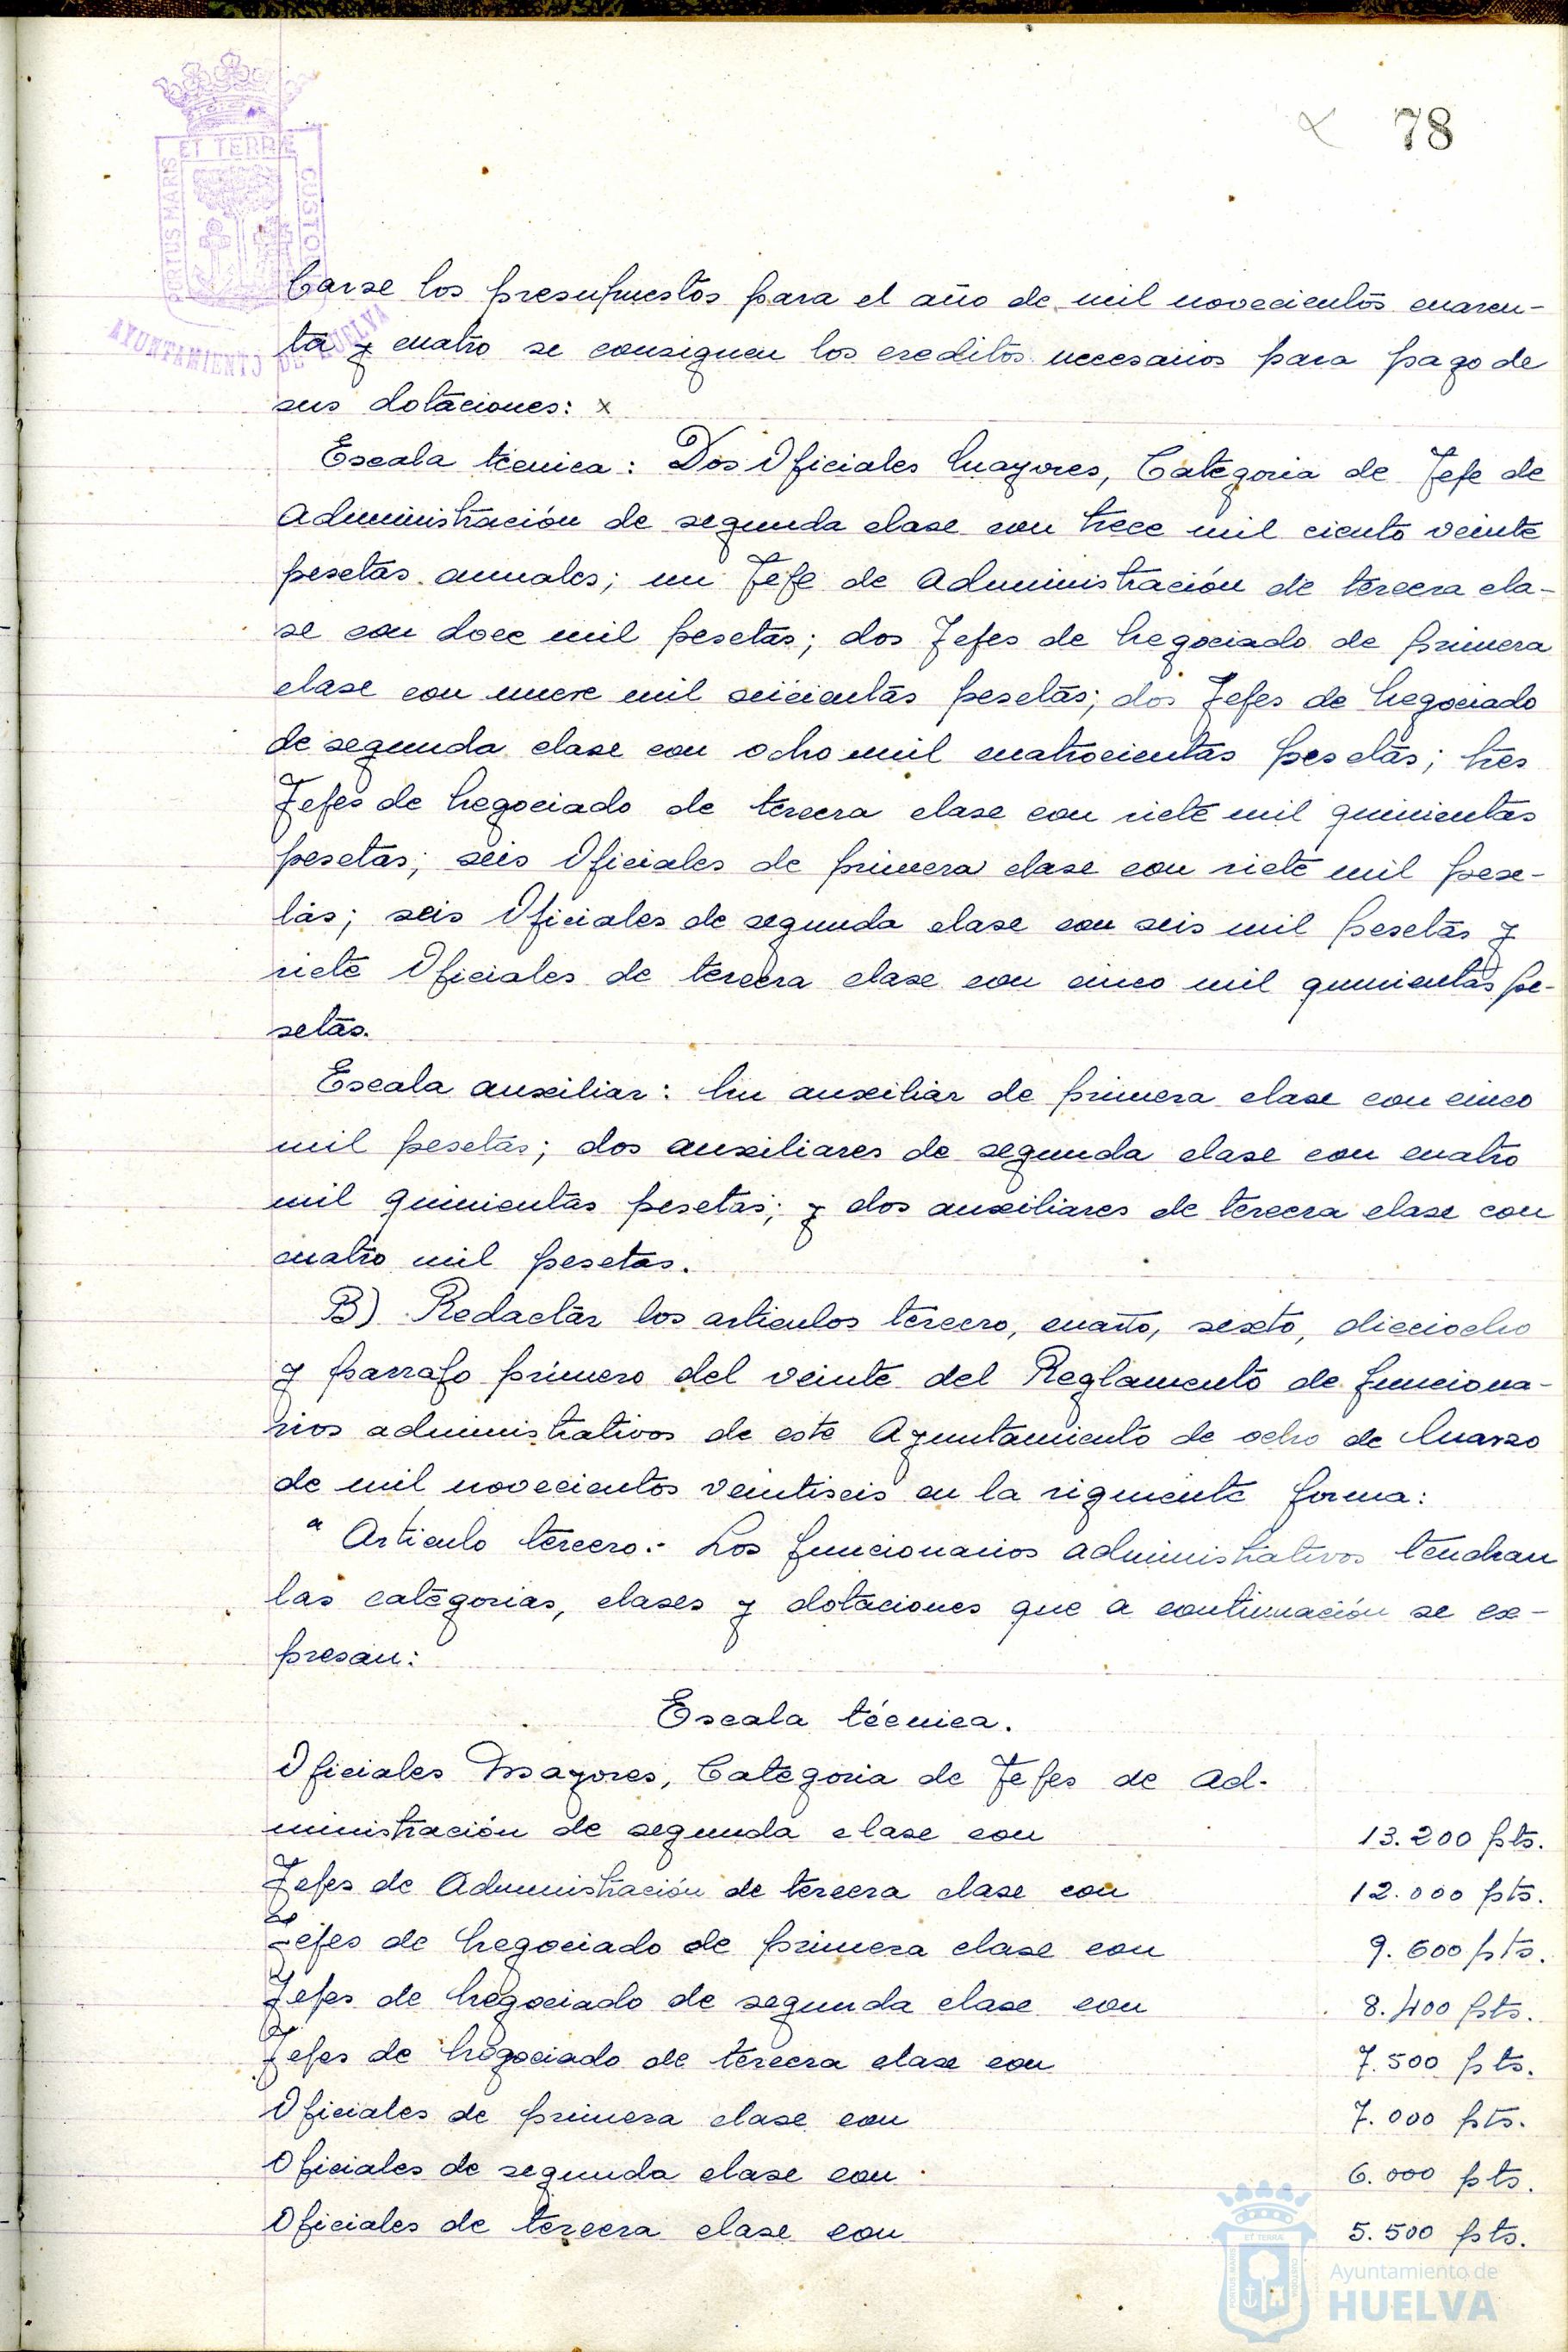 78
PORTUS MARIS ET TERRÆ CUSTO
AYUNTAMIENTO DE HUELVA
carse los presupuestos para el año de mil novecientos cuaren-
ta y cuatro se consignen los creditos necesarios para pago de
sus dotaciones: x
Escala técnica: Dos Oficiales Mayores, Categoria de Jefe de
Administración de segunda clase con trece mil ciento veinte
pesetas anuales; un Jefe de Administración de tercera cla-
se con doce mil pesetas; dos Jefes de Negociado de primera
clase con nueve mil seiscientas pesetas; dos Jefes de Negociado
de segunda clase con ocho mil cuatrocientas pesetas; tres
Jefes de Negociado de tercera clase con siete mil quinientas
pesetas; seis Oficiales de primera clase con siete mil pese-
tas; seis Oficiales de segunda clase con seis mil pesetas y
siete Oficiales de tercera clase con cinco mil quinientas pe-
setas.
Escala auxiliar: Un auxiliar de primera clase con cinco
mil pesetas; dos auxiliares de segunda clase con cuatro
mil quinientas pesetas; y dos auxiliares de tercera clase con
cuatro mil pesetas.
B) Redactar los articulos tercero, cuarto, sexto, dieciocho
y parrafo primero del veinte del Reglamento de funciona-
rios administrativos de este Ayuntamiento de ocho de Marzo
de mil novecientos veintiseis en la siguiente forma:
" Articulo tercero.- Los funcionarios administrativos tendran
las categorias, clases y dotaciones que a continuación se ex-
presan:
Escala técnica.
Oficiales Mayores, Categoria de Jefes de Ad-
ministración de segunda clase con 13.200 pts.
Jefes de Administración de tercera clase con 12.000 pts.
Jefes de Negociado de primera clase con 9.600 pts.
Jefes de Negociado de segunda clase con 8.400 pts.
Jefes de Negociado de tercera clase con 7.500 pts.
Oficiales de primera clase con 7.000 pts.
Oficiales de segunda clase con 6.000 pts.
Oficiales de tercera clase con 5.500 pts.
Ayuntamiento de
HUELVA